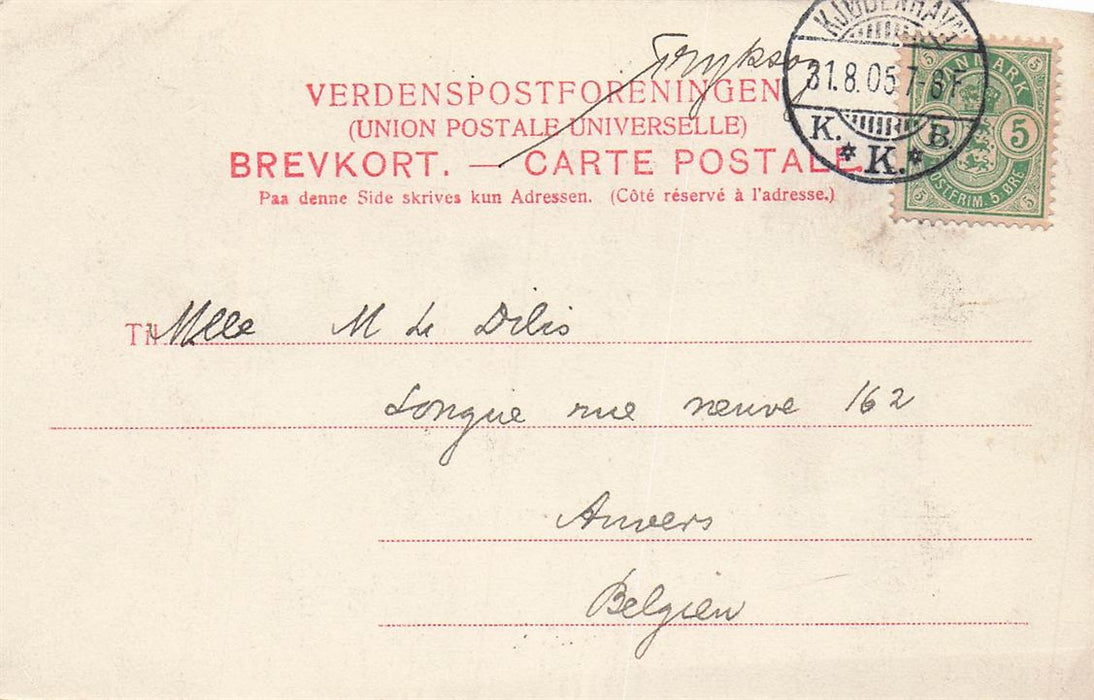 KJØBENHAVN
31.8.05 7-8F
K. K. B.
DANMARK
5 5 5
POSTFRIM. 5 ØRE
5 5
Tryksag
VERDENSPOSTFORENINGEN
(UNION POSTALE UNIVERSELLE)
BREVKORT. — CARTE POSTALE.
Paa denne Side skrives kun Adressen. (Côté réservé à l'adresse.)
Til Mlle M Le Dilis
Longue rue neuve 162
Anvers
Belgien